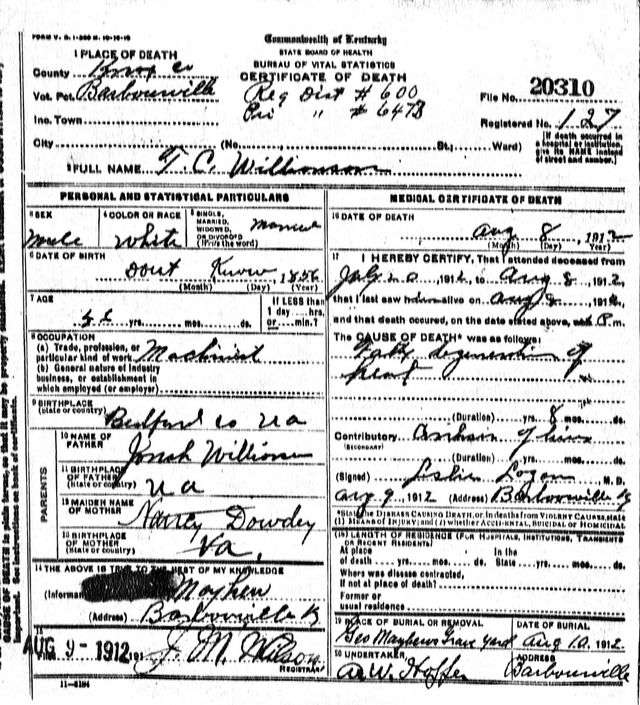 FORM V. S. 1-200 M. 10-10-10
Commonwealth of Kentucky
STATE BOARD OF HEALTH
BUREAU OF VITAL STATISTICS
CERTIFICATE OF DEATH
1 PLACE OF DEATH
County Knox Co
Vot. Pct. Barbourville
Inc. Town
City (No. St.; Ward)
Reg Dist # 600
Pri " # 6473
File No. 20310
Registered No. 127
[If death occurred in a hospital or institution, give its NAME instead of street and number.]
2 FULL NAME T C Willionson
PERSONAL AND STATISTICAL PARTICULARS
3 SEX
Male
4 COLOR OR RACE
White
5 SINGLE, MARRIED, WIDOWED, OR DIVORCED (Write the word)
Married
6 DATE OF BIRTH
Dont Know 1856
(Month) (Day) (Year)
7 AGE
yrs. mos. ds.
If LESS than 1 day hrs. or min.?
8 OCCUPATION
(a) Trade, profession, or particular kind of work Machinist
(b) General nature of industry business, or establishment in which employed (or employer)
9 BIRTHPLACE
(State or country) Bedford Co Va
PARENTS
10 NAME OF FATHER
Jonah
11 BIRTHPLACE OF FATHER (State or country)
Va
12 MAIDEN NAME OF MOTHER
Nancy Dowdey
13 BIRTHPLACE OF MOTHER (State or country)
Va.
14 THE ABOVE IS TRUE TO THE BEST OF MY KNOWLEDGE
(Informant) Mayhew
(Address) Barbourville K
15
AUG 9 - 1912 191 J. M. Wilson
REGISTRAR
11-3184
MEDICAL CERTIFICATE OF DEATH
16 DATE OF DEATH
Aug 8, 1912
(Month) (Day) (Year)
17 I HEREBY CERTIFY, That I attended deceased from
July 20, 1912, to Aug 8, 1912,
that I last saw him alive on Aug 8, 1912,
and that death occured, on the date stated above, at 8 P. m.
The CAUSE OF DEATH* was as follows:
Fatty Degeneration of
heart
(Duration) yrs. 8 mos. ds.
Contributory of liver
(SECONDARY)
(Duration) yrs. mos. ds.
(Signed) Leslie Logan M. D.
Aug 9, 1912 (Address) Barbourville K
*State the DISEASE CAUSING DEATH, or, in deaths from VIOLENT CAUSES, state (1) MEANS OF INJURY; and (2) whether ACCIDENTAL, SUICIDAL OR HOMICIDAL
(18) LENGTH OF RESIDENCE (FOR HOSPITALS, INSTITUTIONS, TRANSIENTS OR RECENT RESIDENTS)
At place of death yrs. mos. ds. In the State yrs. mos. ds.
Where was disease contracted,
If not at place of death?
Former or
usual residence
19 PLACE OF BURIAL OR REMOVAL
Geo Mayhews Grave yard
DATE OF BURIAL
Aug 10, 1912
20 UNDERTAKER
A. W. Hoffer
ADDRESS
Barbourville